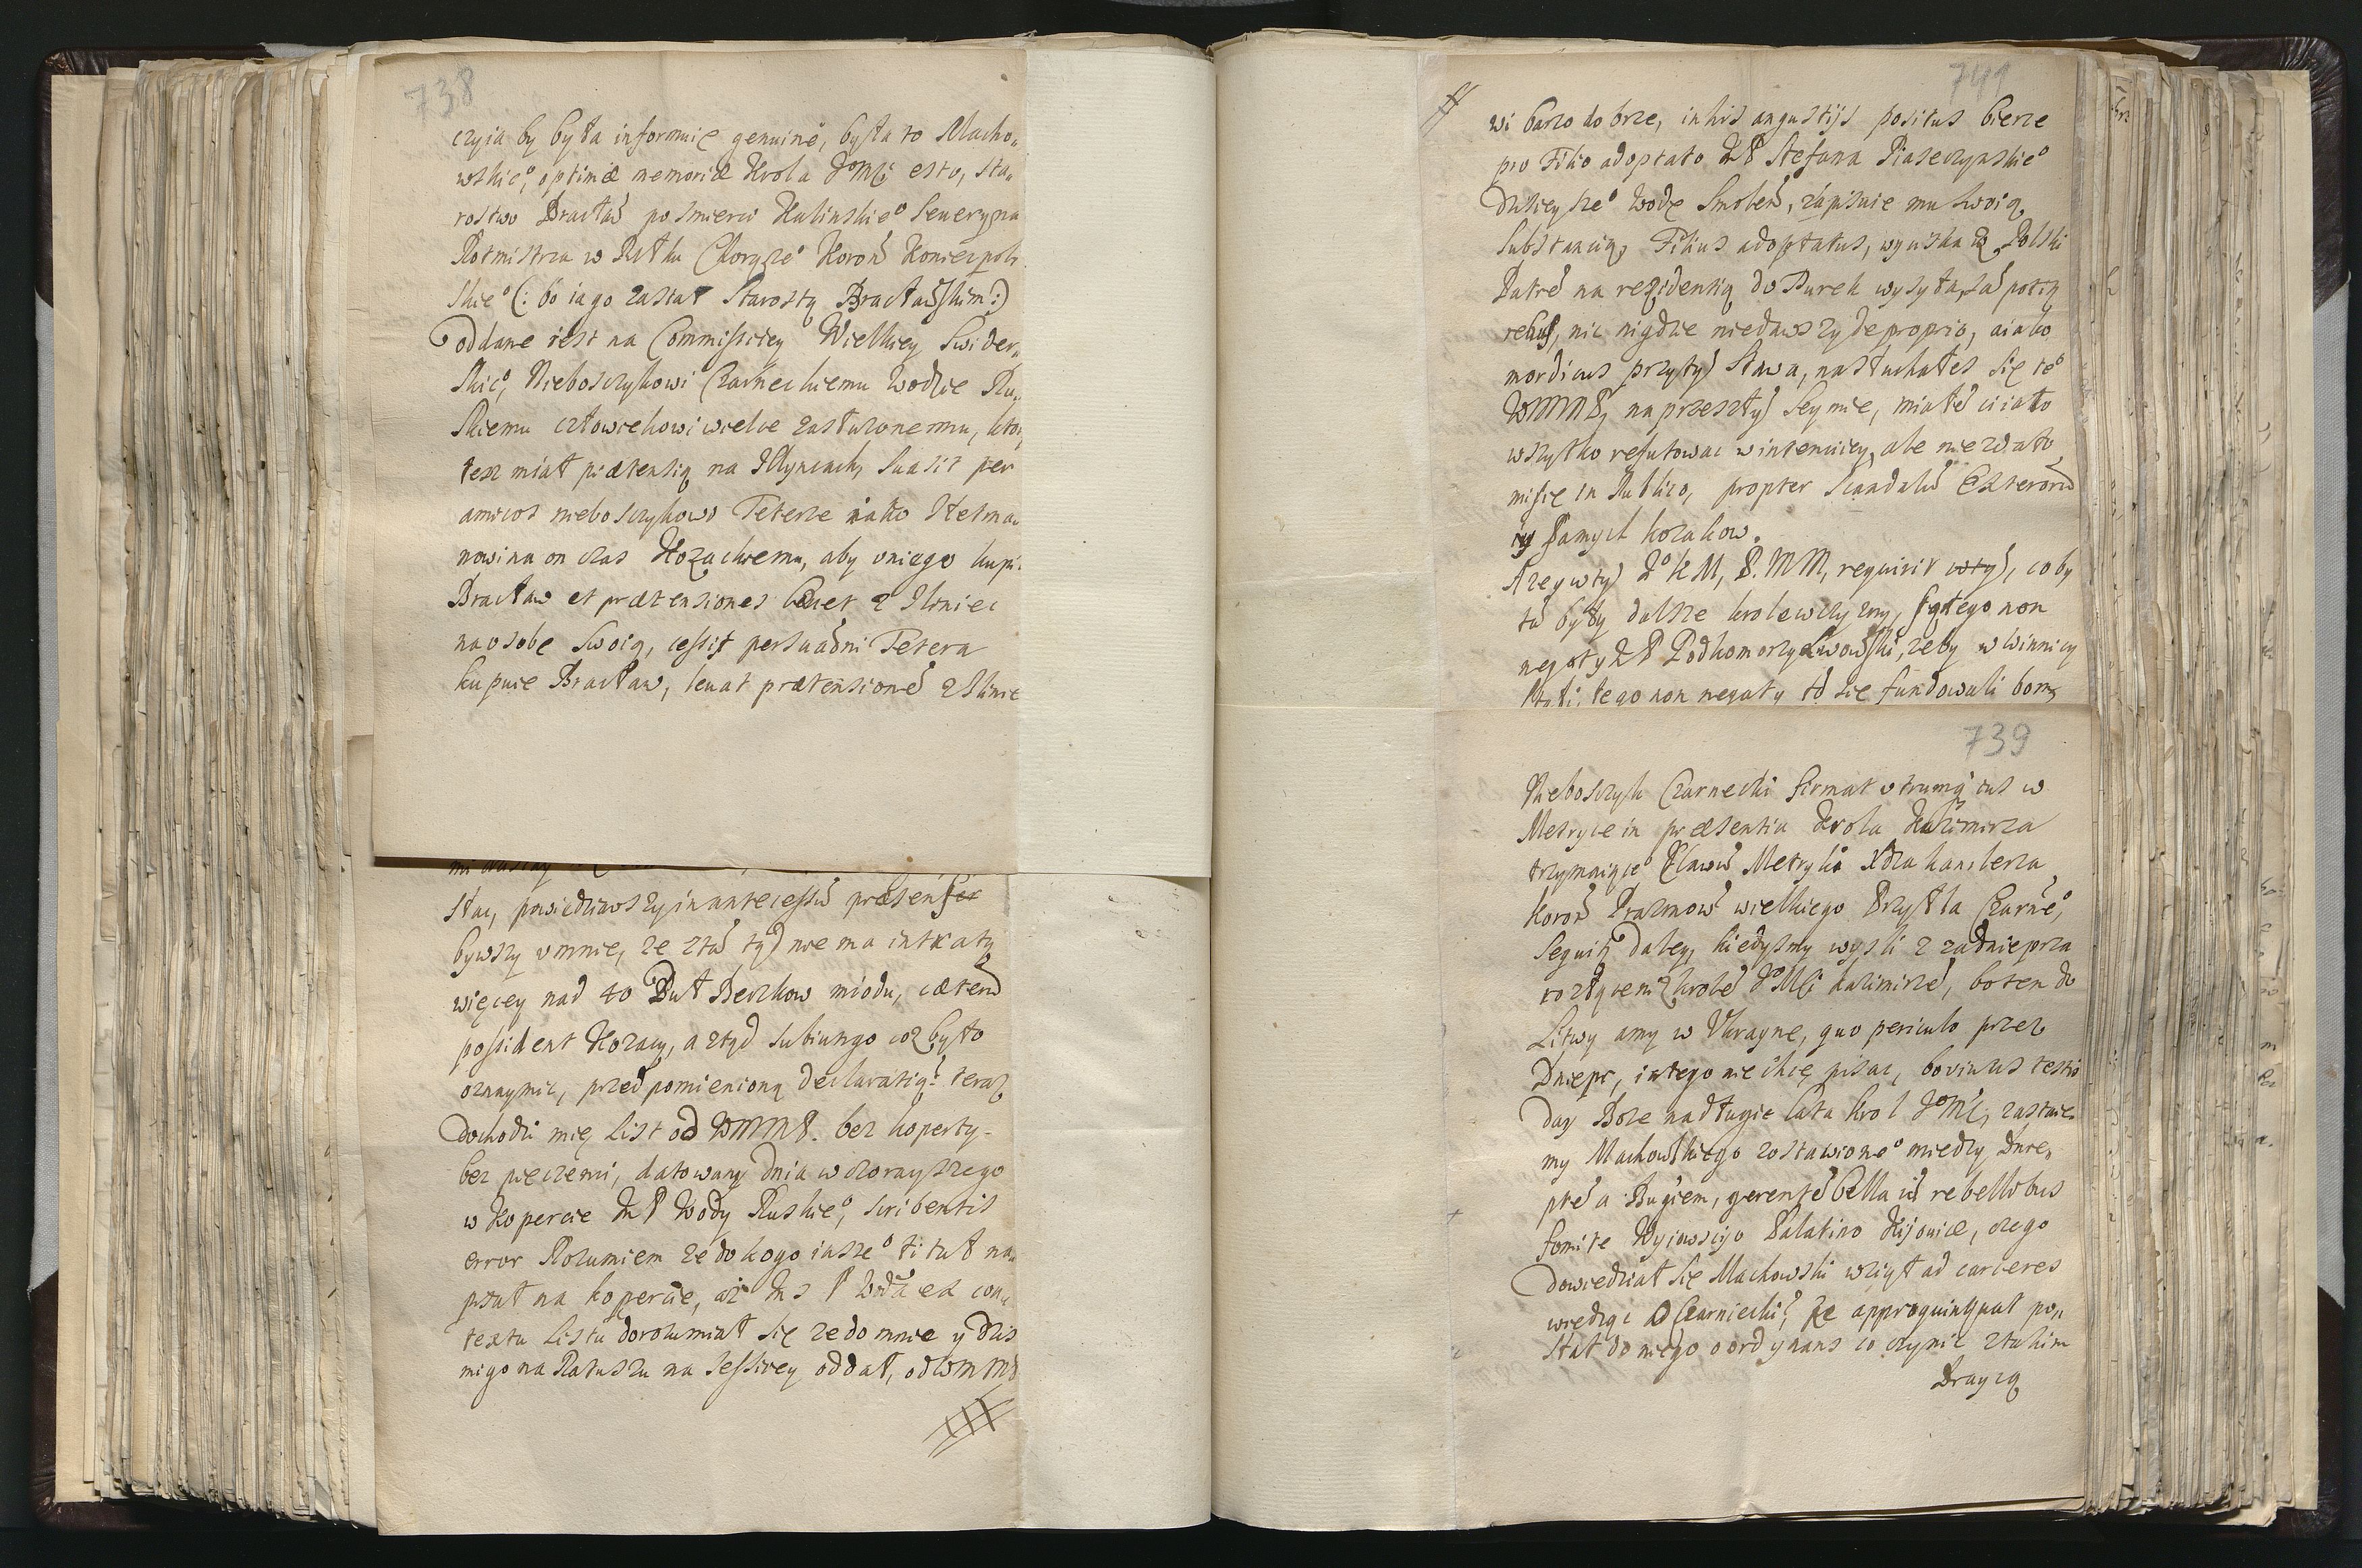 738
czyia by była informuię genuinè, była to Macho„
wskie°, optimæ memoriæ Krola JoMCi esto, sta„
rostwo Bracław po smierci Kalinskie° Seweryna
Rotmistrza w Pułku Chorąże° Koron Koniecpols
skie° (: bo ia go zastał Starostą Bracławskim :)
oddane iest na Commissiiey Wielkiey Swider„
skie°, Nieboszczykowi Czarneckiemu Wodzie Ru„
skiemu człowiekowi wielce zasłużonemu, kto„
tesz miał prætensią na Ilyncach, suasit per
amicos nieboszczykowi Teterze iako Hetma„
nowi na on czas Kozackiemu, aby v niego kupi„
Bracław et prætensiones levet z Iliniec
na osobe swoią, cessit persuasni Tetera
kupuie Bracław, levat prætensione z Ilinie
stac, powiedziawszy in antecessu præsenter
bywszy v mnie, ze ztad tyd nie ma intraty
więcey nad 40 Puł Beczkow miodu, cætera
possident Kozacy, a ztąd subiungo coz było
oznaymic, przed pomienioną declaratią: teraz
dochodzi mię List od WMMP. bez koperty-
bez pieczęci, datowany dnia wczorayszego
w kopercie JmP Wody Ruskie°, scribentis
error Rozumiem ze do kogo insze° tituł na„
pisał na kopercie, aż Jms P Woda ex con„
textu Listu dorozumiał się ze do mnie y dzis
mi go na Ratuszu na Sessiiey oddał, od WMMP
741
wi barzo dobrze, in his angustijs positus bierze
pro Filio adoptato JmP Stefana Piaseczynskie°
dzisieysze° Wodę Smolen, zapisuie mu swoią
substancią, Filius adoptatus, wyuzka z Polski
Patre na rezidentią do Turek wysyła, sad potitq
rebus, nic nigdzie niedawszy de proprio, a iako
mordicus przy tyd stawa, nasłuchałes się te°
WMMP, na przeszły Seymie, miałe ci iato
wszytko refutowac w intenciey, ale nie zdało
mi sie in Publico, propter scandalu Exterorū
iy samych kozakow.
A zey w tyd Jo K M, P. MM, requirit coby
tu były dalsze krolewczyzny, sątego non
negaty JP Podkomorzy Lwowski, zeby w Winnicy
tego non negaty to się fundowali bom
739
Nieboszczyk Czarnecki firmat vtrumq ius w
Metryce in præsentia Krola Kazimirza
trzymaiące° Clavū Metryki Xdza kanclerza
Koron Prazmow wielkiego Przyiła Czarne°,
Sequit daley, kiedysmy wyszli z zadnieprza
rozłączeni z krole JoMCi kazimirze, bo ten do
Litwy a my w Vkrayne, quo periculo przez
Dniepr, in tego nie chcę pisac, bo vivus testis
day Boze na długie lata krol JoMC, zastaie„
my Machowskiego zostawione° między Dnie„
pre a Bugiem, gerente bella cū rebellibus
fomite Wyiowscijo Palatino Kijoviæ, czego
dowiedział się Machowski wziął ad carceres
wiedząc o Czarniecki, ze appropinquat po„
słał do niego o ordynans co czynic z takim
Drayzą